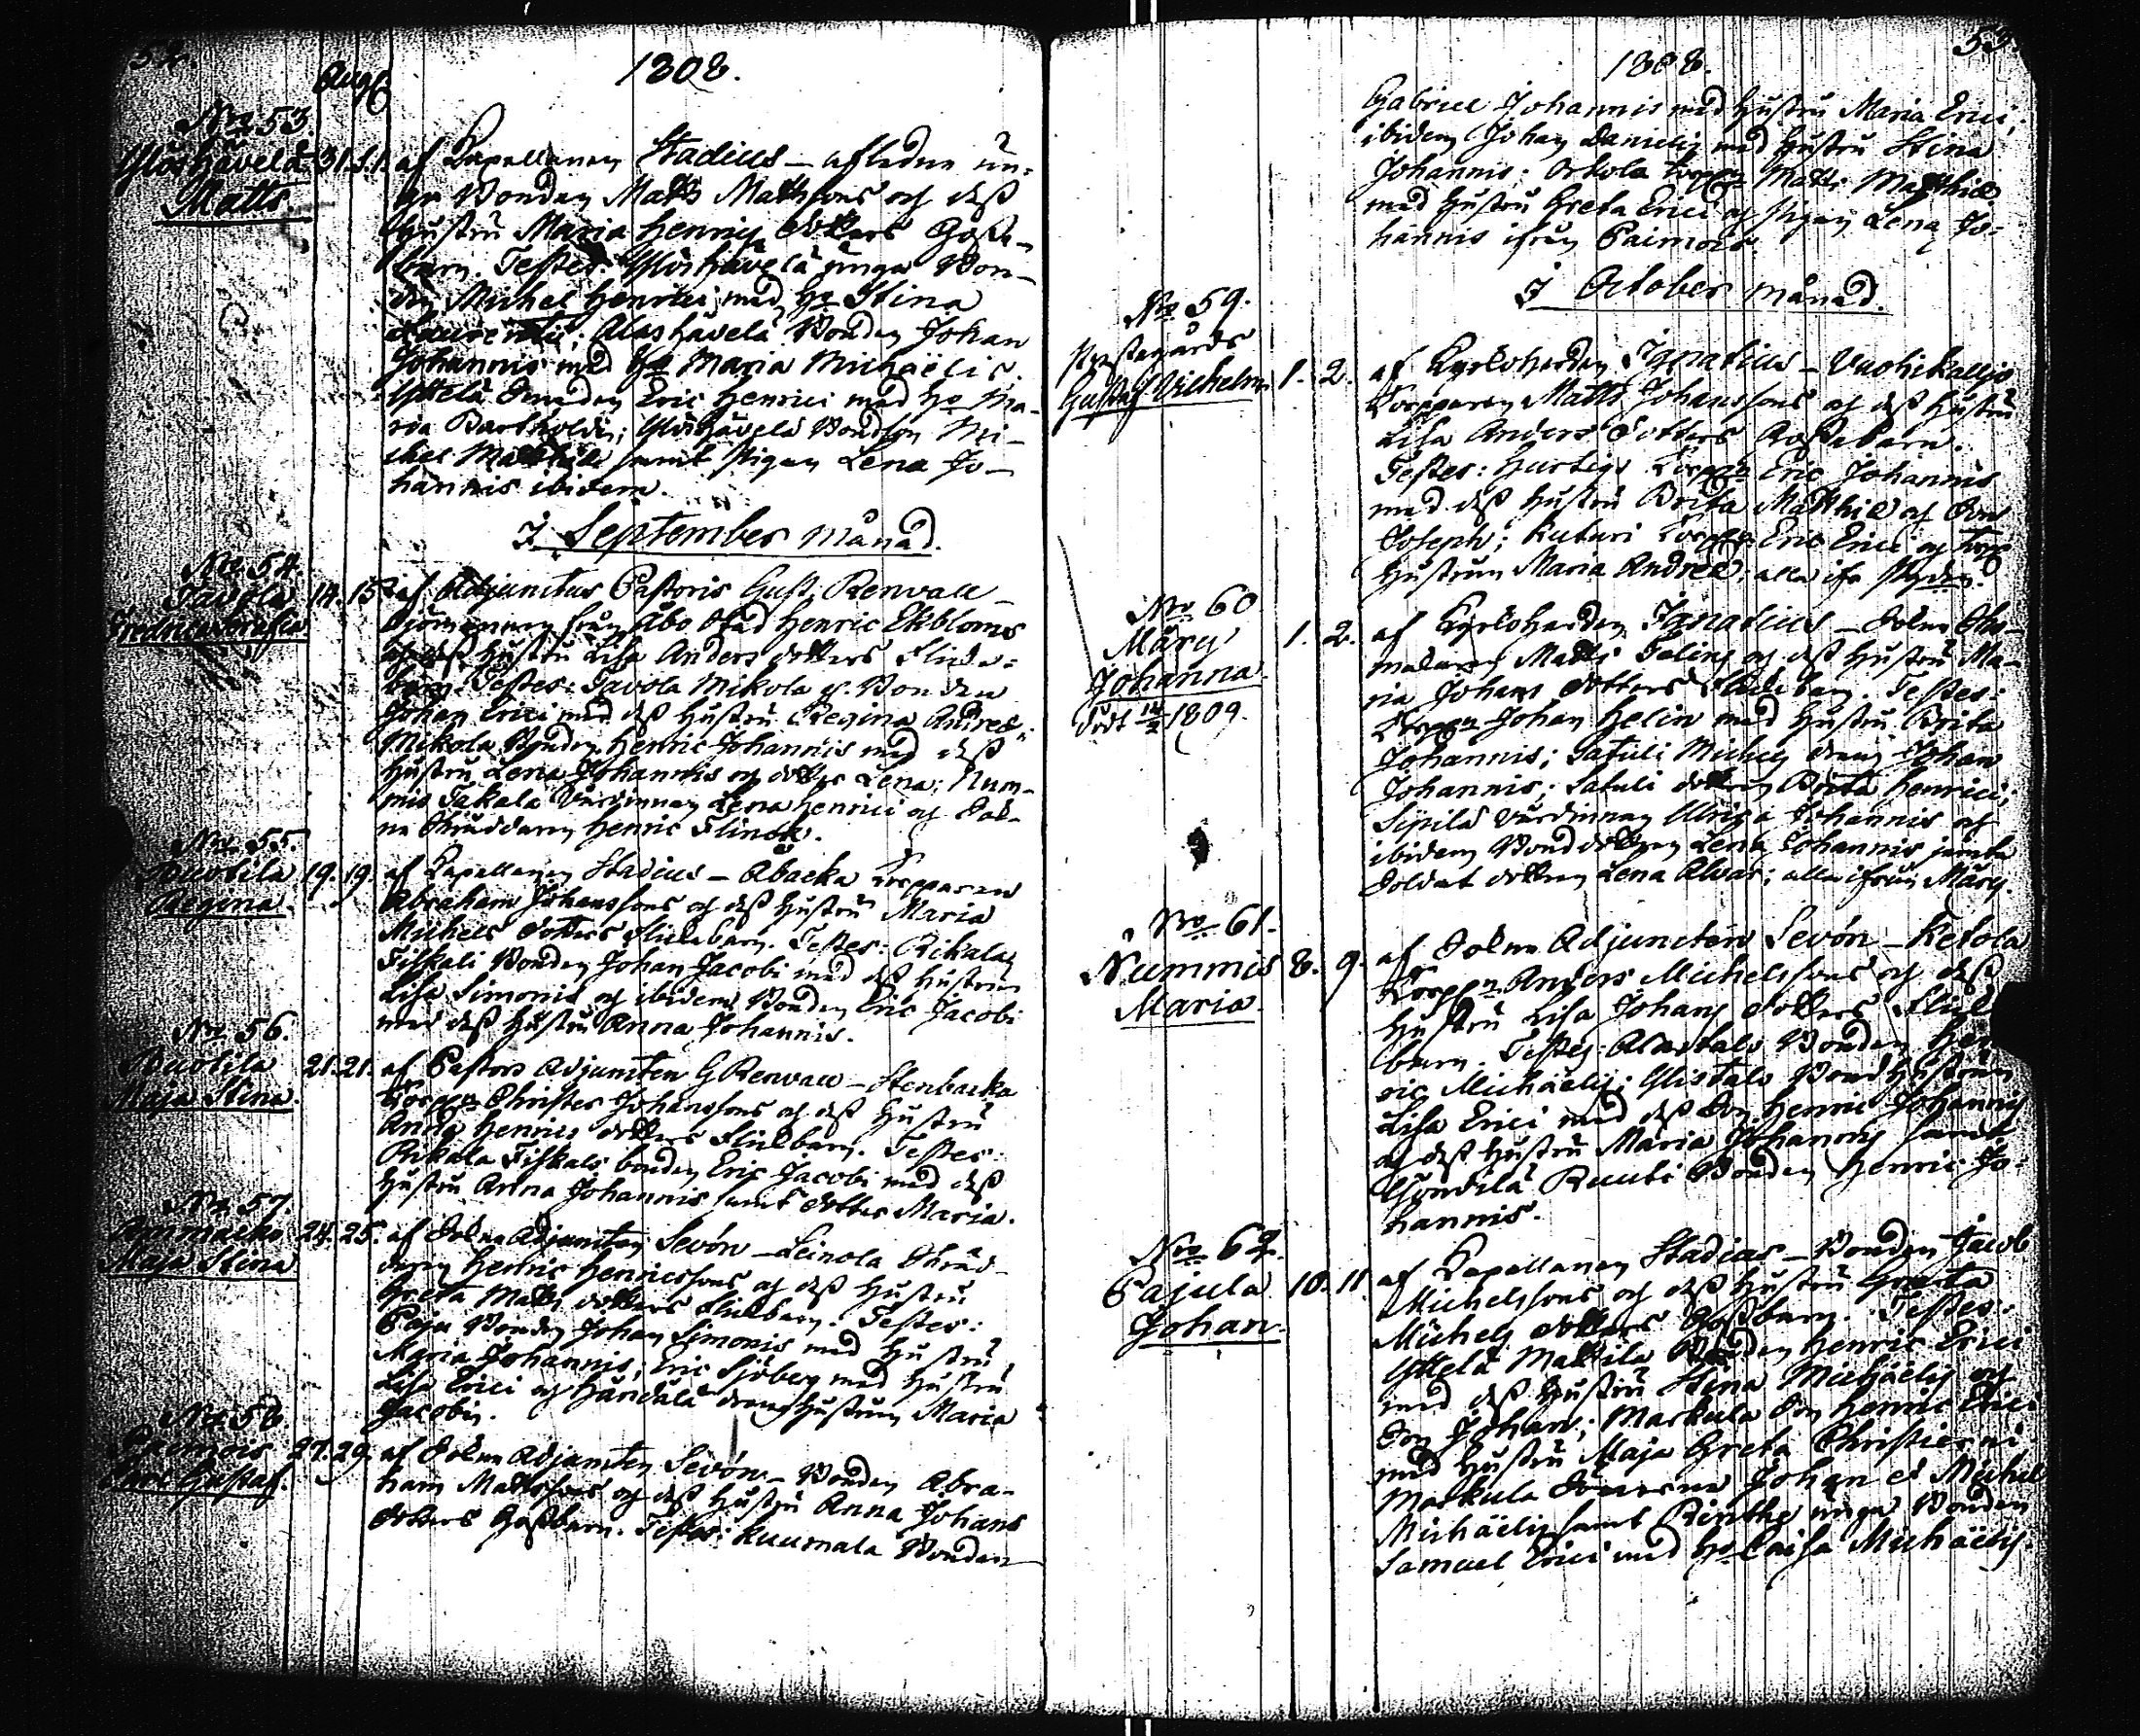 52.
1808.
Aug.
No 53.
Ylöshävelä 31. S.1.
Matts
af Capellanen Stadius – afledne un-
ge Bonden Matts Mathssons och dess
Hustru Maria Henrics dotters Gosse-
barn. Testes: Ylöshävelä unga Bon-
den Michel Henrici med Ho Stina
Laurentii; Alashävelä Bonden Johan
Johannis med Ho Maria Michaëlis.
Yttelä Eric Henrici med Ho Ma-
ria Bartholdi; Ylöshävelä Bondson Mi-
chel Matthiæ samt Pigan Lena Jo-
hannis ibidem.
I September månad.
No 54.
Tavola 14. 15.
Fredrica Sofia
af Adjunctus Pastoris Gust. Renvall –
Sjömannen från Åbo Stad Henric Ekbloms
och dess Hustru Lisa Anders dotters Flicke-
barn. Testes: Tavola Mikola g. Bonden
Johan Erici med dess Hustru Regina Andreæ;
Mikola Bonden Henric Johannis med dess
Hustru Lena Johannis och dotter Lena; Num-
mis Takala Värdinnan Lena Henrici och Sok-
ne Skräddaren Henric Flinck.
No 55.
Ruotila 19. 19.
Regina
af Capellanen Stadius – Abacka Torpparen
Abraham Johanssons och dess Hustru Maria
Michels dotters Flickbarn. Testes: Rikala
Fiskali Bonden Johan Jacobi med dess Hustru
Lisa Simonis och ibidem Bonden Eric Jacobi
med dess Hustru Anna Johannis.
No 56.
Ruotila 21. 21.
Maja Stina.
af Pastors Adjuncten G Renvall – Stenbacka
Torpp:n Christer Johanssons och dess Hustru
Anna Henrics dotters Flickbarn. Testes:
Rikala Fiskals bonden Eric Jacobi med dess
Hustru Anna Johannis samt dotter Maria.
No 57.
Ammaiko 24. 25.
Maja Stina
af Sokne Adjuncten Sevón – Leinola Skräd-
daren Henric Henricssons och dess Hustru
Greta Matts dotters Flickbarn. Testes:
Paju Bonden Johan Simonis med Hustru
Maria Johannis; Eric Sjöberg med Hustru
Lisa Erici och Händälä dräng Hustrun Maria
Jacobi.
No 58
Paimois 27. 29.
Carl Gustaf.
af Sokne Adjuncten Sevón – Bonden Abra-
ham Mattssons och dess Hustru Anna Johans
dotters Gossbarn. Testes: Kuumala Bonden
53.
1808.
Gabriel Johannis med Hustru Maria Erici,
ibidem Johan Danielis med Hustru Stina
Johannis; Orkola Torpp:n Matts Matthiæ
med Hustru Greta Erici och Pigan Lena Jo-
hannis ifrån Paimois.
I October månad.
No 59.
Prestgårds
Gustaf Vilhelm 1. 2.
af Kyrkoherden Ignatius – Vuohikallio
Torpparen Matts Johanssons och dess Hustru
Lisa Anders dotters Gossebarn.
Testes: Hurtigs Torpp:n Eric Johannis
med dess Hustru Brita Matthiæ och Son
Joseph; Kuturi Torpp:n Eric Erici och Torp
Hustrun Maria Andreæ; alla ifr
No 60
Märy 1. 2.
Johanna.
Född 14/2 1809.
af Kyrkoherden Ignatius – Sokne Sko-
makaren Matts Felins och dess Hustru Ma-
ria Johans dotters Flickbarn. Testes:
Torpp:n Johan Helin med Hustru Brita
Johannis; Satuli Michels dräng Johan
Johannis; Satuli dottren Brita Henrici;
Sipilä Värdinnan Ulrica Johannis och
ibidem Bonddottren Lena Johannis jemte
Soldat dottren Lena Alvar; alla ifrån Märy.
No 61.
Nummis 8. 9.
Maria.
af Sokne Adjuncten Sevón – Ketola
Torpp:n Anders Michelssons och dess
Hustru Lisa Johans dotters Flick
barn. Testes: Alastalo Bonden Hen
ric Michaëlis; Ylistalo Bond Hustrun
Lisa Erici med dess Son Henric Johannis
och dess Hustru Maria Johannis samt
Ruuti Bonden Henric Jo-
hannis.
No 62.
Pajula 10. 11.
Johan.
af Capellanen Stadius – Bonden Jacob
Michelssons och dess Hustru Greta
Michels dotters Gossbarn. Testes:
Yttelä Mattila Bonden Henric Erici
med dess Hustru Stina Michaëlis och
Son Johan; Markula Son Henric Erici
med Hustru Maja Greta Christierni
Markula Sönerne Johan et Michel
Michaëlis samt Rinthe unga Bonden
Samuel Erici med Ho Caisa Michaëlis.